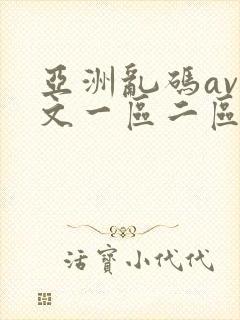 亞洲亂碼av
文一區二區
活寶小代代